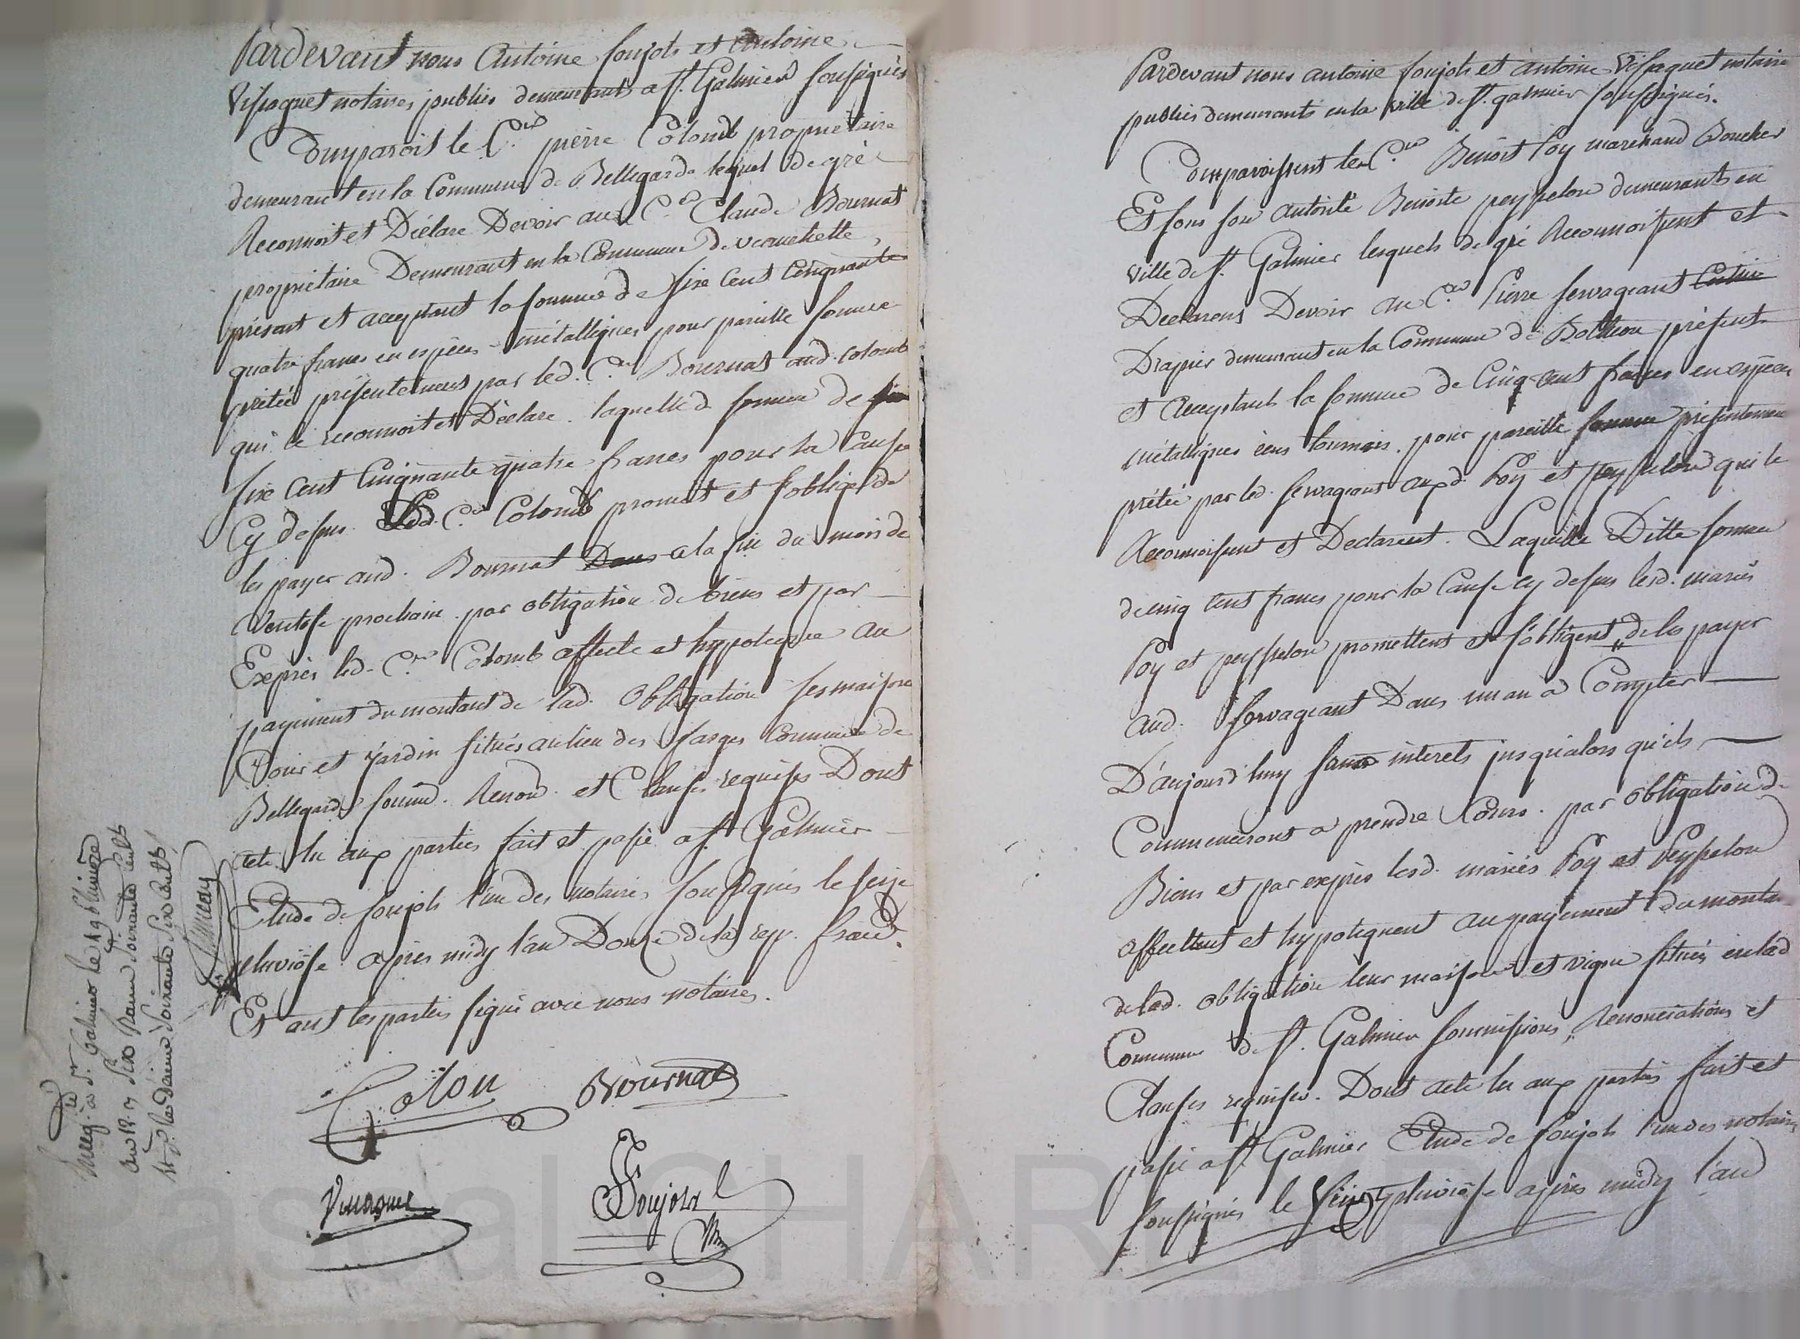 Pardevant nous Antoine Soujols et Antoine
Vissaguet notaires publics demeurants a St. Galmier soussignés
Comparoit le Cen. pierre Colomb propriétaire
demeurant en la Commune de Bellegarde lequel de gré
Reconnoit et Déclare Devoir au Cen. Claude Bournat
propriétaire Demeurant en la Commune de
présent et acceptant la somme de six cent cinquante
quatre francs en espèces métalliques pour pareille somme
prêtée présentement par led. Cen. Bournat aud. Colomb
qui le reconnoit et Déclare. laquelle d. somme de
six cent Cinquante quatre francs pour la Cause
Cy dessus Led. Cen. Colomb promet et s'oblige de
les payer aud. Bournat Dans a la fin du mois de
Ventose prochain par obligation de biens et par
Exprès led. Cen. Colomb affecte et hypoteque au
payement du montant de lad. Obligation ses maison
Cour et jardin situés au lieu des farges Commune de
Bellegarde soumd. Renond. et Clauses requises Dont
acte lu aux parties fait et passé a St. Galmier
Etude de Soujols l'un des notaires soussignés le seize
pluviose après midy l'an Douze de la rep. franc.
Et ont les parties signé avec nous notaires.
Colon Bournat
Soujols
Enreg. à St. Galmier le 19 pluviose
an 12
Pardevant nous antoine Soujols et antoine Vissaguet notaires
publics demeurants en la ville de St. galmier soussignés.
Comparoissent les Cens. Benoit Poy marchand Boucher
Et sous son autorité Benoite peysselon demeurants en
ville de St. Galmier lesquels de gré Reconnoissent et
Declarent Devoir au Cen. Pierre servageant
Drapier demeurant en la Commune de présent
et acceptant la somme de Cinq cent francs en espèces
métalliques sens tournois pour pareille somme présentement
prêtée par led. servageant auxd. Poy et peysselon qui le
Reconnoissent et Declarent. Laquelle Ditte somme
de cinq cent francs pour la Cause cy dessus lesd. mariés
Poy et peysselon promettent et s'obligent de les payer
aud. servageant Dans un an a Compter
D'aujourd'huy sans interets jusqu'alors qu'ils
Commenceront a prendre Cours. par obligation de
Biens et par exprès lesd. mariés Poy et Peysselon
affectent et hypotequent au payement du montant
de lad. obligation leur maison et vigne situés en lad.
Commune de St. Galmier soumissions, Renonciations et
Clauses requises. Dont acte lu aux parties fait et
passé a St. Galmier Etude de Soujols l'un des notaires
soussignés le pluviose après midy l'an
Pascal CHARLETRON